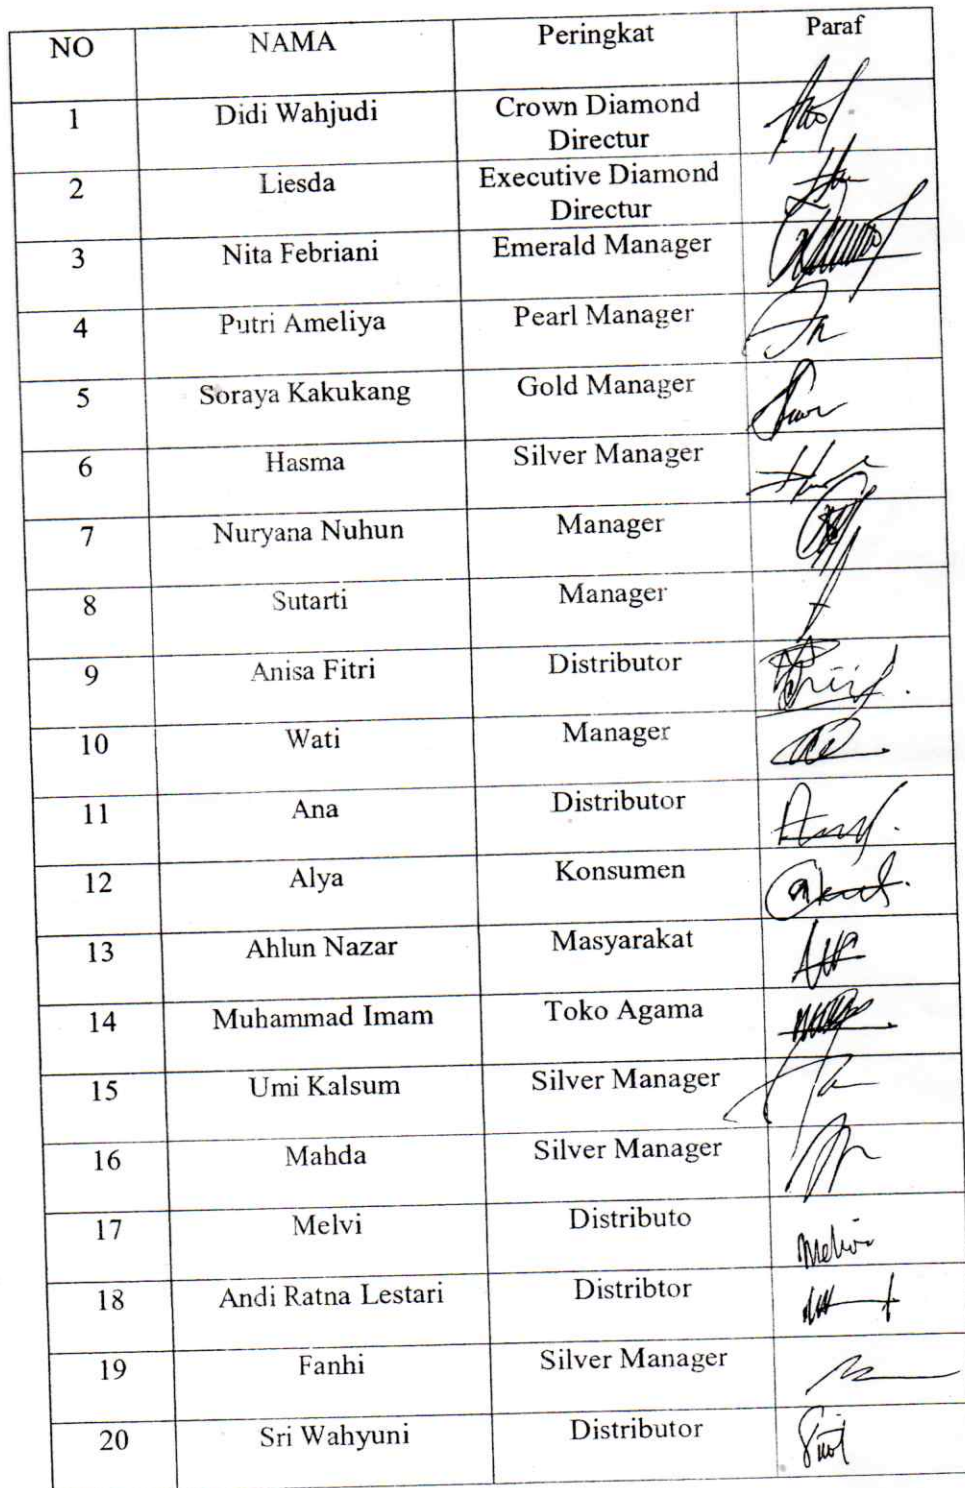 NO NAMA Peringkat Paraf
1 Didi Wahjudi Crown Diamond
Directur
2 Liesda Executive Diamond
Directur
3 Nita Febriani Emerald Manager
4 Putri Ameliya Pearl Manager
5 Soraya Kakukang Gold Manager
6 Hasma Silver Manager
7 Nuryana Nuhun Manager
8 Sutarti Manager
9 Anisa Fitri Distributor
10 Wati Manager
11 Ana Distributor
12 Alya Konsumen
13 Ahlun Nazar Masyarakat
14 Muhammad Imam Toko Agama
15 Umi Kalsum Silver Manager
16 Mahda Silver Manager
17 Melvi Distributo
18 Andi Ratna Lestari Distribtor
19 Fanhi Silver Manager
20 Sri Wahyuni Distributor